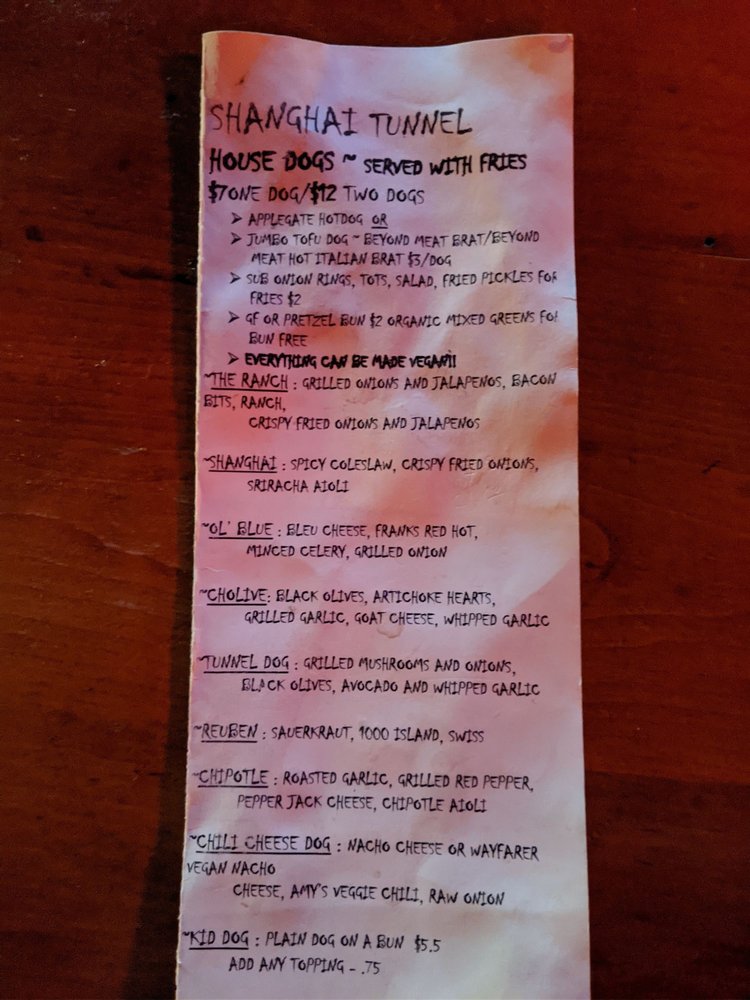 SHANGHAI TUNNEL
HOUSE DOGS ~ SERVED WITH FRIES
$7ONE DOG/$12 TWO DOGS
➤ APPLEGATE HOTDOG OR
➤ JUMBO TOFU DOG ~ BEYOND MEAT BRAT/BEYOND
MEAT HOT ITALIAN BRAT $3/DOG
➤ SUB ONION RINGS, TOTS, SALAD, FRIED PICKLES FOR
FRIES $2
➤ GF OR PRETZEL BUN $2 ORGANIC MIXED GREENS FOR
BUN FREE
➤ EVERYTHING CAN BE MADE VEGAN!!
~THE RANCH : GRILLED ONIONS AND JALAPENOS, BACON
BITS, RANCH,
CRISPY FRIED ONIONS AND JALAPENOS
~SHANGHAI : SPICY COLESLAW, CRISPY FRIED ONIONS,
SRIRACHA AIOLI
~OL' BLUE : BLEU CHEESE, FRANKS RED HOT,
MINCED CELERY, GRILLED ONION
~CHOLIVE: BLACK OLIVES, ARTICHOKE HEARTS,
GRILLED GARLIC, GOAT CHEESE, WHIPPED GARLIC
~TUNNEL DOG : GRILLED MUSHROOMS AND ONIONS,
BLACK OLIVES, AVOCADO AND WHIPPED GARLIC
~REUBEN : SAUERKRAUT, 1000 ISLAND, SWISS
~CHIPOTLE : ROASTED GARLIC, GRILLED RED PEPPER,
PEPPER JACK CHEESE, CHIPOTLE AIOLI
~CHILI CHEESE DOG : NACHO CHEESE OR WAYFARER
VEGAN NACHO
CHEESE, AMY'S VEGGIE CHILI, RAW ONION
~KID DOG : PLAIN DOG ON A BUN $5.5
ADD ANY TOPPING - .75